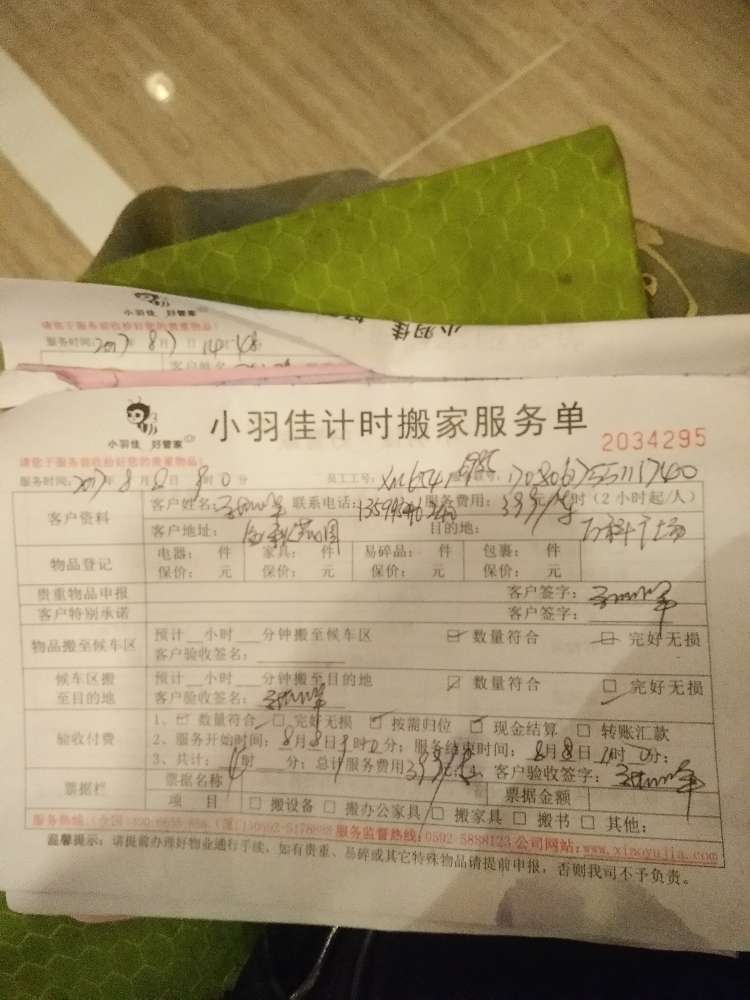 小羽佳 好管家
小羽佳
请您于服务前收拾好您的贵重物品!
服务时间:2017年8月 日
客户姓名
小羽佳 好管家
小羽佳计时搬家服务单
2034295
请您于服务前收拾好您的贵重物品!
服务时间:2017年8月8日 时0分 员工工号:
客户资料 客户姓名: 联系电话: 服务费用: 元/时(2小时起/人)
客户地址: 目的地: 万科广场
物品登记 电器: 件 家具: 件 易碎品: 件 包裹: 件
保价: 元 保价: 元 保价: 元 保价: 元
贵重物品申报 客户签字:
客户特别承诺 客户签字:
物品搬至候车区 预计__小时____分钟搬至候车区 数量符合 完好无损
客户验收签名:
候车区搬至目的地 预计__小时____分钟搬至目的地 数量符合 完好无损
客户验收签名:
验收付费 1、 数量符合 完好无损 按需归位 现金结算 转账汇款
2、服务开始时间:8月8日 时0分;服务结束时间:8月8日 时0分;
3、共计:4时 分;总计服务费用 元 客户验收签字:
票据栏 票据名称 票据金额
项 目 搬设备 搬办公家具 搬家具 搬书 其他:
服务热线: 服务监督热线:0592-5888123 公司网站:www.xiaoyujia.com
温馨提示:请提前办理好物业通行手续,如有贵重、易碎或其它特殊物品请提前申报,否则我司不予负责。